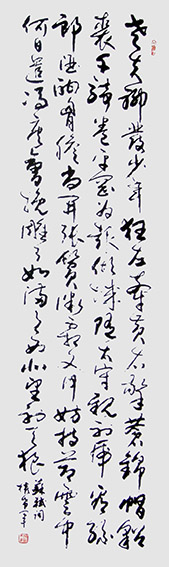 老夫聊發少年狂左牽黃右擎蒼錦帽貂
裘千騎卷平岡為報傾城隨太守親射虎看孫
郎酒酣胸膽尚開張鬢微霜又何妨持節雲中
何日遣馮唐會挽雕弓如滿月西北望射天狼
蘇軾詞